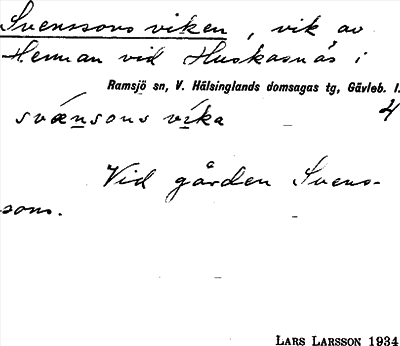 Svenssons viken, vik av
Hennan vid Huskasnäs i
Ramsjö sn, V. Hälsinglands domsagas tg, Gävleb. l.
4
svǽnsons vi̍ka
Vid gården Svens-
sons.
LARS LARSSON 1934